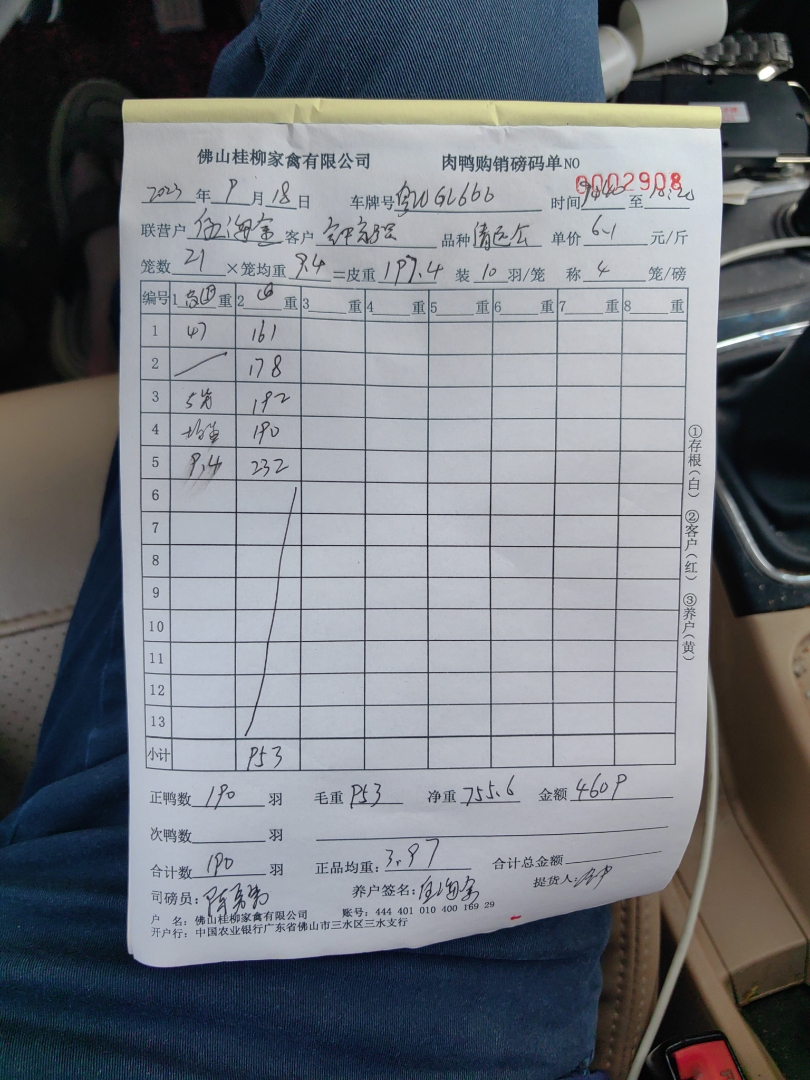 佛山桂柳家禽有限公司 肉鸭购销磅码单NO 0002908
2023年9月18日 车牌号 GL666 时间 9:40 至
联营户 伍海金 客户 品种 清远公 单价 6.1 元/斤
笼数 21 ×笼均重 9.4 =皮重 197.4 装 10 羽/笼 称 4 笼/磅
编号 1 重 2 重 3 重 4 重 5 重 6 重 7 重 8 重
1 47 161
2 178
3 5 192
4 均重 190
5 9.4 232
6
7
8
9
10
11
12
13
小计 953
①存根(白) ②客户(红) ③养户(黄)
正鸭数 190 羽 毛重 953 净重 755.6 金额 4609
次鸭数 羽
合计数 190 羽 正品均重: 3.97 合计总金额
司磅员: 养户签名: 伍海金 提货人:
户 名: 佛山桂柳家禽有限公司 账号: 444 401 010 400 169 29
开户行: 中国农业银行广东省佛山市三水区三水支行